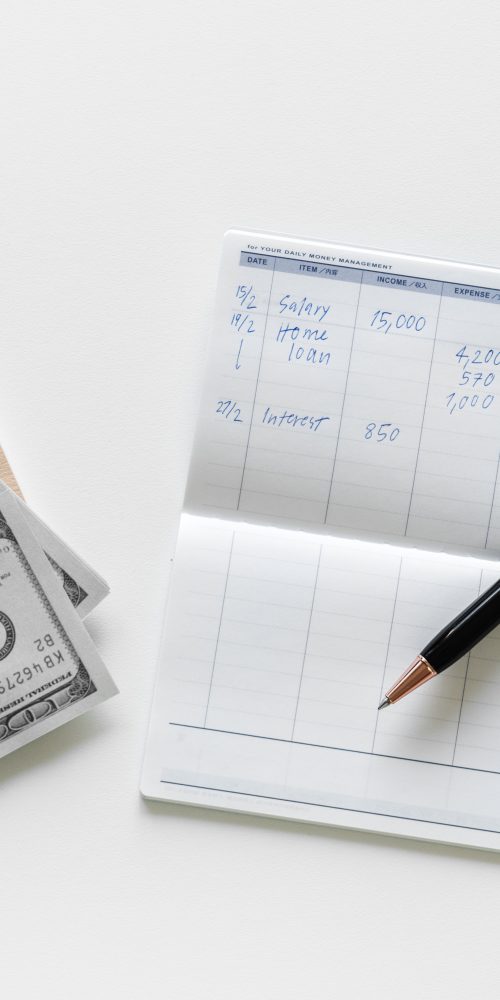 for YOUR DAILY MONEY MANAGEMENT
DATE ITEM／内容 INCOME／収入 EXPENSE／
15/2 Salary 15,000
19/2 Home 4,200
loan 570
1,000
27/2 Interest 850
KB46279
B2
FEDERAL RESE
100